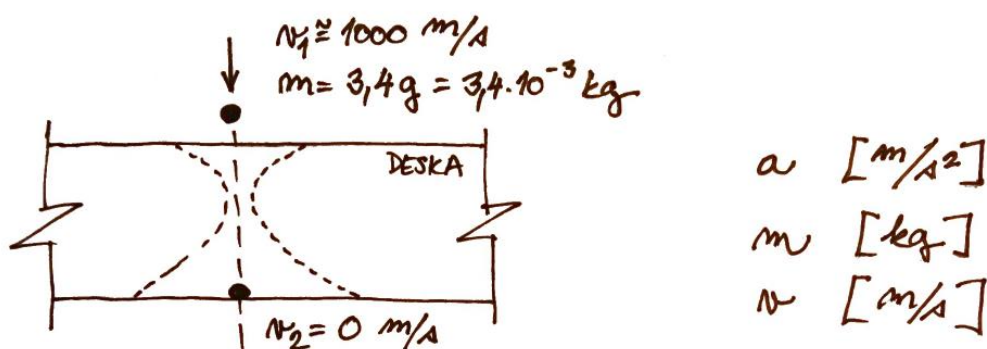 v₁ ≅ 1000 m/s
m = 3,4 g = 3,4·10⁻³ kg
DESKA
v₂ = 0 m/s
a [m/s²]
m [kg]
v [m/s]